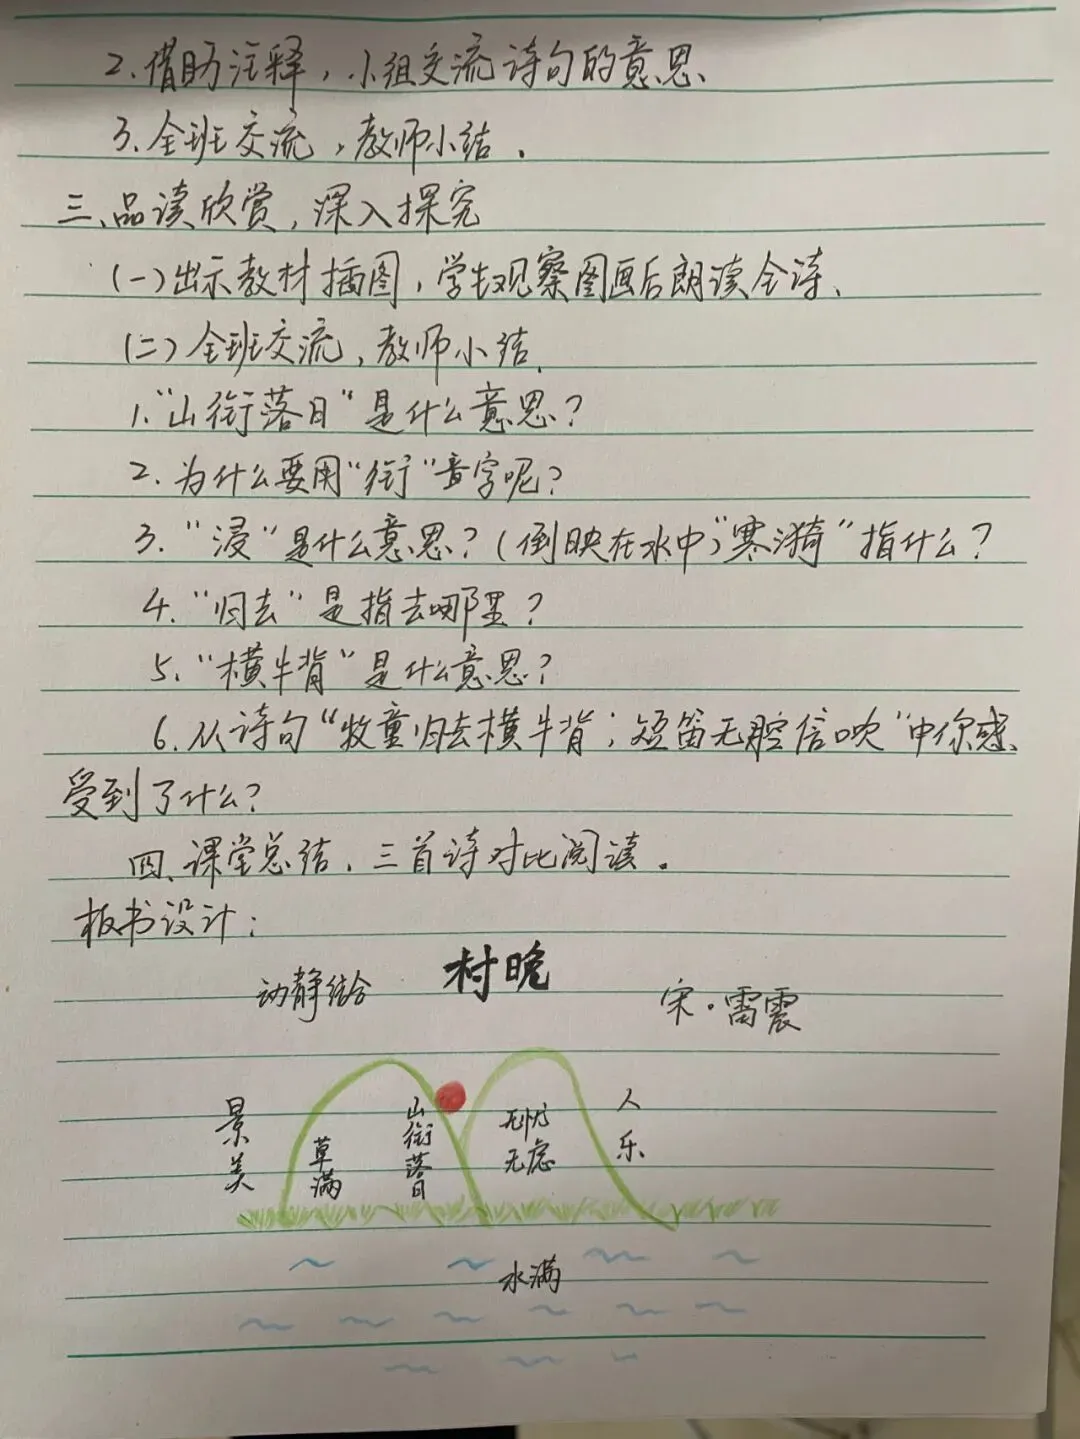 2.借助注释，小组交流诗句的意思、
3.全班交流，教师小结.
三、品读欣赏，深入探究
(一)出示教材插图，学生观察图画后朗读全诗、
(二)全班交流，教师小结.
1."山衔落日"是什么意思？
2.为什么要用"衔"这字呢？
3."浸"是什么意思？(倒映在水中)"寒漪"指什么？
4."归去"是指去哪里？
5."横牛背"是什么意思？
6.从诗句"牧童归去横牛背；短笛无腔信吹"中你感
受到了什么？
四、课堂总结，三首诗对比阅读。
板书设计：
村晚
动静结合
宋·雷震
景美
草满
山衔落日
无忧
无虑
人乐
水满